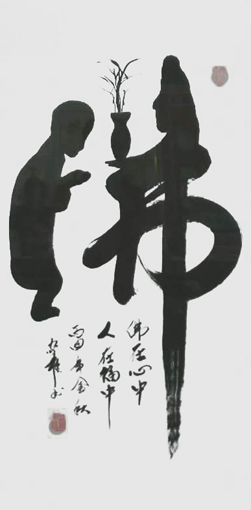 佛
佛在心中
人在福中
丙申年金秋
书